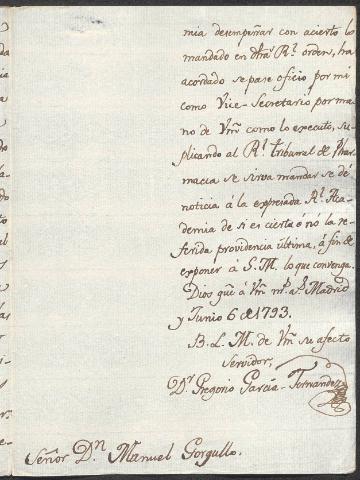 mia desempeñar con acierto lo
mandado en dha Rl. orden, ha
acordado se pase oficio por mi
como Vice-Secretario por ma
no de Vm como lo executo, su-
plicando al Rl. Tribunal de Phar
macia se sirva mandar se dé
noticia á la expresada Rl. Aca-
demia de si es cierta ó nó la re-
ferida providencia última, á fin de
exponer á S.M. lo que convenga.
Dios gue á Vm ms. as. Madrid
y Junio 6 de 1793.
B. L. M. de Vm su afecto
Servidor,
Dr. Gregorio Garcia-Fernandez
Señor Dn. Manuel Gorgullo.